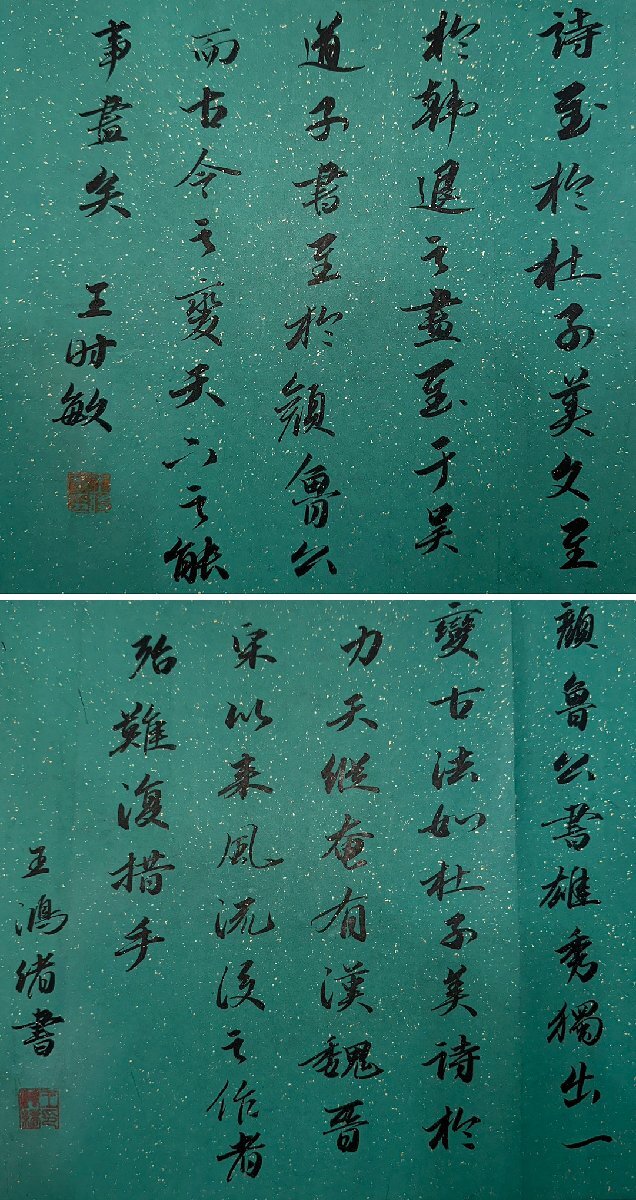 詩至於杜子美文至
於韓退之畫至于吴
道子書至於顔魯公
而古今之變天下之能
事盡矣
王时敏
顔魯公書雄秀獨出一
變古法如杜子美詩於
力天縱奄有漢魏晋
宋以来風流後之作者
殆難復措手
王鴻緒書